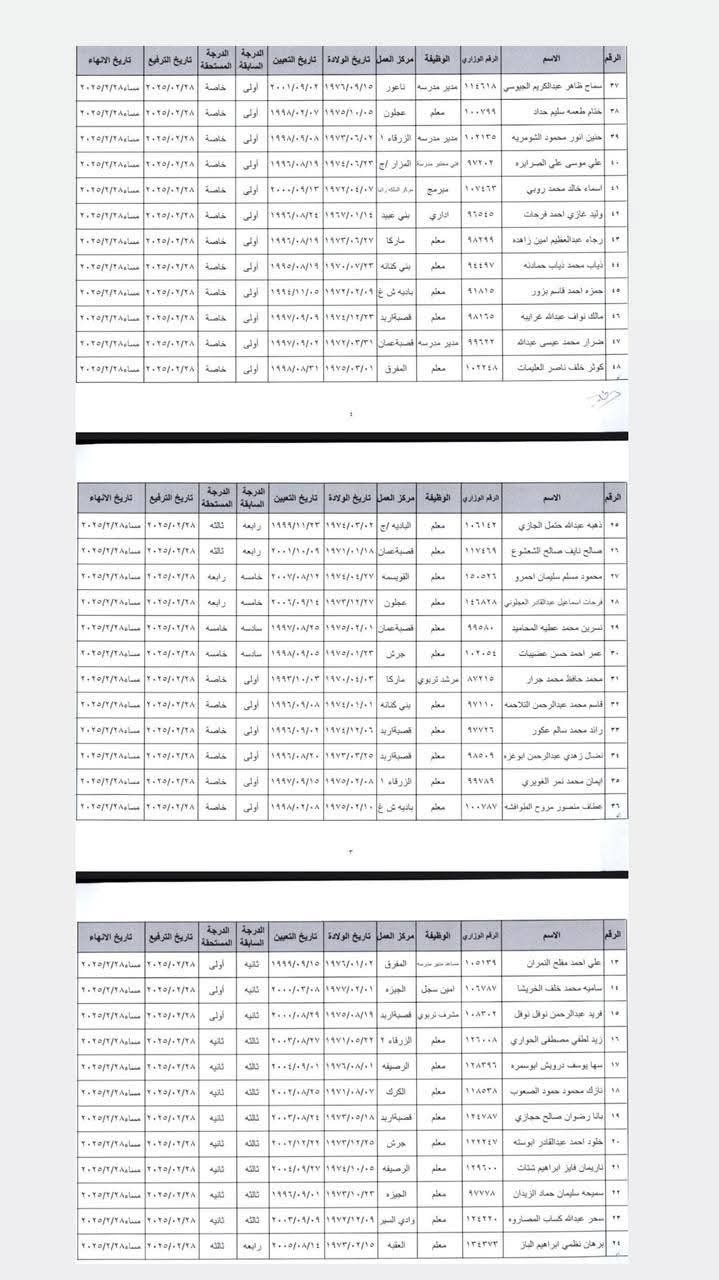 الرقم الاسم الرقم الوزاري الوظيفة مركز العمل تاريخ الولادة تاريخ التعيين الدرجة السابقة الدرجة المستحقة تاريخ الترفيع تاريخ الانهاء
٣٧ سماح ظاهر عبدالكريم الجيوسي ١١٤٦١٨ مدير مدرسه ناعور ١٩٧٦/٠٩/١٥ ٢٠٠١/٠٩/٠٢ أولى خاصة ٢٠٢٥/٠٢/٢٨ مساء٢٠٢٥/٢/٢٨
٣٨ ختام طعمه سليم حداد ١٠٠٧٩٩ معلم عجلون ١٩٧٥/١٠/٠٥ ١٩٩٨/٠٢/٠٧ أولى خاصة ٢٠٢٥/٠٢/٢٨ مساء٢٠٢٥/٢/٢٨
٣٩ حنين انور محمود الشومريه ١٠٢١٣٥ مدير مدرسه الزرقاء ١ ١٩٧٣/٠٦/٠٢ ١٩٩٨/٠٩/٠٨ أولى خاصة ٢٠٢٥/٠٢/٢٨ مساء٢٠٢٥/٢/٢٨
٤٠ علي موسى علي الصرايره ٩٧٢٠٢ فني مختبر مدرسة المزار /ج ١٩٧٤/٠٦/٢٣ ١٩٩٦/٠٨/١٩ أولى خاصة ٢٠٢٥/٠٢/٢٨ مساء٢٠٢٥/٢/٢٨
٤١ اسماء خالد محمد روبي ١٠٧٤٦٣ مبرمج مركز الملكه رانيا ١٩٧٢/٠٤/٠٧ ٢٠٠٠/٠٩/١٣ أولى خاصة ٢٠٢٥/٠٢/٢٨ مساء٢٠٢٥/٢/٢٨
٤٢ وليد غازي احمد فرحات ٩٦٥٤٥ اداري بني عبيد ١٩٦٧/٠١/١٤ ١٩٩٦/٠٨/٢٤ أولى خاصة ٢٠٢٥/٠٢/٢٨ مساء٢٠٢٥/٢/٢٨
٤٣ رجاء عبدالعظيم امين زاهده ٩٨٢٩٩ معلم ماركا ١٩٧٣/٠٦/٢٧ ١٩٩٦/٠٨/١٩ أولى خاصة ٢٠٢٥/٠٢/٢٨ مساء٢٠٢٥/٢/٢٨
٤٤ ذياب محمد ذياب حمادنه ٩٤٤٩٧ معلم بني كنانه ١٩٧٠/٠٧/٢٣ ١٩٩٥/٠٨/١٩ أولى خاصة ٢٠٢٥/٠٢/٢٨ مساء٢٠٢٥/٢/٢٨
٤٥ حمزه احمد قاسم بزور ٩١٨١٥ معلم باديه ش غ ١٩٧٢/٠٢/٠٩ ١٩٩٤/١١/٠٥ أولى خاصة ٢٠٢٥/٠٢/٢٨ مساء٢٠٢٥/٢/٢٨
٤٦ مالك نواف عبدالله غرايبه ٩٨١٦٥ معلم قصبةاربد ١٩٧٤/١٢/٢٣ ١٩٩٧/٠٩/٠٩ أولى خاصة ٢٠٢٥/٠٢/٢٨ مساء٢٠٢٥/٢/٢٨
٤٧ ضرار محمد عيسى عبدالله ٩٩٦٢٢ مدير مدرسه قصبةعمان ١٩٧٢/٠٣/٣١ ١٩٩٧/٠٩/٠٢ أولى خاصة ٢٠٢٥/٠٢/٢٨ مساء٢٠٢٥/٢/٢٨
٤٨ كوثر خلف ناصر العليمات ١٠٢٢٤٨ معلم المفرق ١٩٧٥/٠٣/٠١ ١٩٩٨/٠٨/٣١ أولى خاصة ٢٠٢٥/٠٢/٢٨ مساء٢٠٢٥/٢/٢٨
٤
الرقم الاسم الرقم الوزاري الوظيفة مركز العمل تاريخ الولادة تاريخ التعيين الدرجة السابقة الدرجة المستحقة تاريخ الترفيع تاريخ الانهاء
٢٥ ذهبه عبدالله حتمل الجازي ١٠٦١٤٢ معلم الباديه /ج ١٩٧٤/٠٣/٠٢ ١٩٩٩/١١/٢٣ رابعه ثالثه ٢٠٢٥/٠٢/٢٨ مساء٢٠٢٥/٢/٢٨
٢٦ صالح نايف صالح الشعشوع ١١٧٤٦٩ معلم قصبةعمان ١٩٧١/٠١/١٨ ٢٠٠١/١٠/٠٩ رابعه ثالثه ٢٠٢٥/٠٢/٢٨ مساء٢٠٢٥/٢/٢٨
٢٧ محمود مسلم سليمان احمرو ١٥٠٥٢٦ معلم القويسمه ١٩٧٤/٠٤/٢٧ ٢٠٠٧/٠٨/١٢ خامسه رابعه ٢٠٢٥/٠٢/٢٨ مساء٢٠٢٥/٢/٢٨
٢٨ فرحات اسماعيل عبدالقادر العجلوني ١٤٦٨٢٨ معلم عجلون ١٩٧٣/١٢/٢٧ ٢٠٠٦/٠٩/١٤ خامسه رابعه ٢٠٢٥/٠٢/٢٨ مساء٢٠٢٥/٢/٢٨
٢٩ نسرين محمد عطيه المحاميد ٩٩٥٨٠ معلم قصبةعمان ١٩٧٥/٠٢/٠١ ١٩٩٧/٠٨/٢٥ سادسه خامسه ٢٠٢٥/٠٢/٢٨ مساء٢٠٢٥/٢/٢٨
٣٠ عمر احمد حسن عضيبات ١٠٢٠٥٤ معلم جرش ١٩٧٥/٠١/٢٣ ١٩٩٨/٠٩/٠٥ سادسه خامسه ٢٠٢٥/٠٢/٢٨ مساء٢٠٢٥/٢/٢٨
٣١ محمد حافظ محمد جرار ٨٧٢١٥ مرشد تربوي ماركا ١٩٧٠/٠٤/٠٣ ١٩٩٣/١٠/٠٣ أولى خاصة ٢٠٢٥/٠٢/٢٨ مساء٢٠٢٥/٢/٢٨
٣٢ قاسم محمد عبدالرحمن التلاحمه ٩٧١١٠ معلم بني كنانه ١٩٧٤/٠١/٠١ ١٩٩٦/٠٩/٠٨ أولى خاصة ٢٠٢٥/٠٢/٢٨ مساء٢٠٢٥/٢/٢٨
٣٣ رائد محمد سالم عكور ٩٧٧٢٦ معلم قصبةاربد ١٩٧٤/١٢/٠٦ ١٩٩٦/٠٩/٠٢ أولى خاصة ٢٠٢٥/٠٢/٢٨ مساء٢٠٢٥/٢/٢٨
٣٤ نضال زهدي عبدالرحمن ابوغره ٩٨٥٠٩ معلم قصبةاربد ١٩٧٣/٠٣/٢٥ ١٩٩٦/٠٨/٢٠ أولى خاصة ٢٠٢٥/٠٢/٢٨ مساء٢٠٢٥/٢/٢٨
٣٥ ايمان محمد نمر الغويري ٩٩٧٨٩ معلم الزرقاء ١ ١٩٧٥/٠٢/٠٨ ١٩٩٧/٠٩/١٥ أولى خاصة ٢٠٢٥/٠٢/٢٨ مساء٢٠٢٥/٢/٢٨
٣٦ عطاف منصور مروح الطوافشه ١٠٠٧٨٧ معلم باديه ش غ ١٩٧٥/٠٢/١٠ ١٩٩٨/٠٢/٠٨ أولى خاصة ٢٠٢٥/٠٢/٢٨ مساء٢٠٢٥/٢/٢٨
٣
الرقم الاسم الرقم الوزاري الوظيفة مركز العمل تاريخ الولادة تاريخ التعيين الدرجة السابقة الدرجة المستحقة تاريخ الترفيع تاريخ الانهاء
١٣ علي احمد مفلح النمران ١٠٥١٣٩ مساعد مدير مدرسة المفرق ١٩٧٦/٠١/٠٢ ١٩٩٩/٠٩/١٥ ثانيه أولى ٢٠٢٥/٠٢/٢٨ مساء٢٠٢٥/٢/٢٨
١٤ ساميه محمد خلف الخريشا ١٠٦٧٨٧ امين سجل الجيزه ١٩٧٧/٠٢/٠١ ٢٠٠٠/٠٣/٠٨ ثانيه أولى ٢٠٢٥/٠٢/٢٨ مساء٢٠٢٥/٢/٢٨
١٥ فريد عبدالرحمن نوفل نوفل ١٠٨٣٠٢ مشرف تربوي قصبةاربد ١٩٧٥/٠٨/١٩ ٢٠٠٠/٠٨/٢٩ ثانيه أولى ٢٠٢٥/٠٢/٢٨ مساء٢٠٢٥/٢/٢٨
١٦ زيد لطفي مصطفى الحواري ١٢٦٠٠٨ معلم الزرقاء ٢ ١٩٧١/٠٥/٢٢ ٢٠٠٣/٠٨/٢٧ ثالثه ثانيه ٢٠٢٥/٠٢/٢٨ مساء٢٠٢٥/٢/٢٨
١٧ سها يوسف درويش ابوسمره ١٢٨٣٩٦ معلم الرصيفه ١٩٧٦/٠٨/٠١ ٢٠٠٤/٠٩/٠١ ثالثه ثانيه ٢٠٢٥/٠٢/٢٨ مساء٢٠٢٥/٢/٢٨
١٨ نازك محمود حمود الصعوب ١١٨٥٣٨ معلم الكرك ١٩٧١/٠٨/٠٧ ٢٠٠٢/٠٨/٢٥ ثالثه ثانيه ٢٠٢٥/٠٢/٢٨ مساء٢٠٢٥/٢/٢٨
١٩ بانا رضوان صالح حجازي ١٢٤٧٨٧ معلم قصبةاربد ١٩٧٣/٠٥/١٨ ٢٠٠٣/٠٨/٢٤ ثالثه ثانيه ٢٠٢٥/٠٢/٢٨ مساء٢٠٢٥/٢/٢٨
٢٠ خلود احمد عبدالقادر ابوسته ١٢٢٢٤٧ معلم جرش ١٩٧٣/١٢/٢٥ ٢٠٠٢/١٢/٢٢ ثالثه ثانيه ٢٠٢٥/٠٢/٢٨ مساء٢٠٢٥/٢/٢٨
٢١ ناريمان فايز ابراهيم شتات ١٢٩٦٠٠ معلم الرصيفه ١٩٧٤/١٠/٠٥ ٢٠٠٤/٠٩/٢٧ ثالثه ثانيه ٢٠٢٥/٠٢/٢٨ مساء٢٠٢٥/٢/٢٨
٢٢ سميحه سليمان حماد الزيدان ٩٧٧٧٨ معلم الجيزه ١٩٧٣/١٠/٢٣ ١٩٩٦/٠٩/٠١ ثالثه ثانيه ٢٠٢٥/٠٢/٢٨ مساء٢٠٢٥/٢/٢٨
٢٣ سحر عبدالله كساب المصاروه ١٢٤٢٢٠ معلم وادي السير ١٩٧٢/١٢/٠٩ ٢٠٠٣/٠٩/٠٩ ثالثه ثانيه ٢٠٢٥/٠٢/٢٨ مساء٢٠٢٥/٢/٢٨
٢٤ برهان نظمي ابراهيم الباز ١٣٤٣٧٣ معلم العقبه ١٩٧٣/٠٢/١٥ ٢٠٠٥/٠٨/١٤ رابعه ثالثه ٢٠٢٥/٠٢/٢٨ مساء٢٠٢٥/٢/٢٨